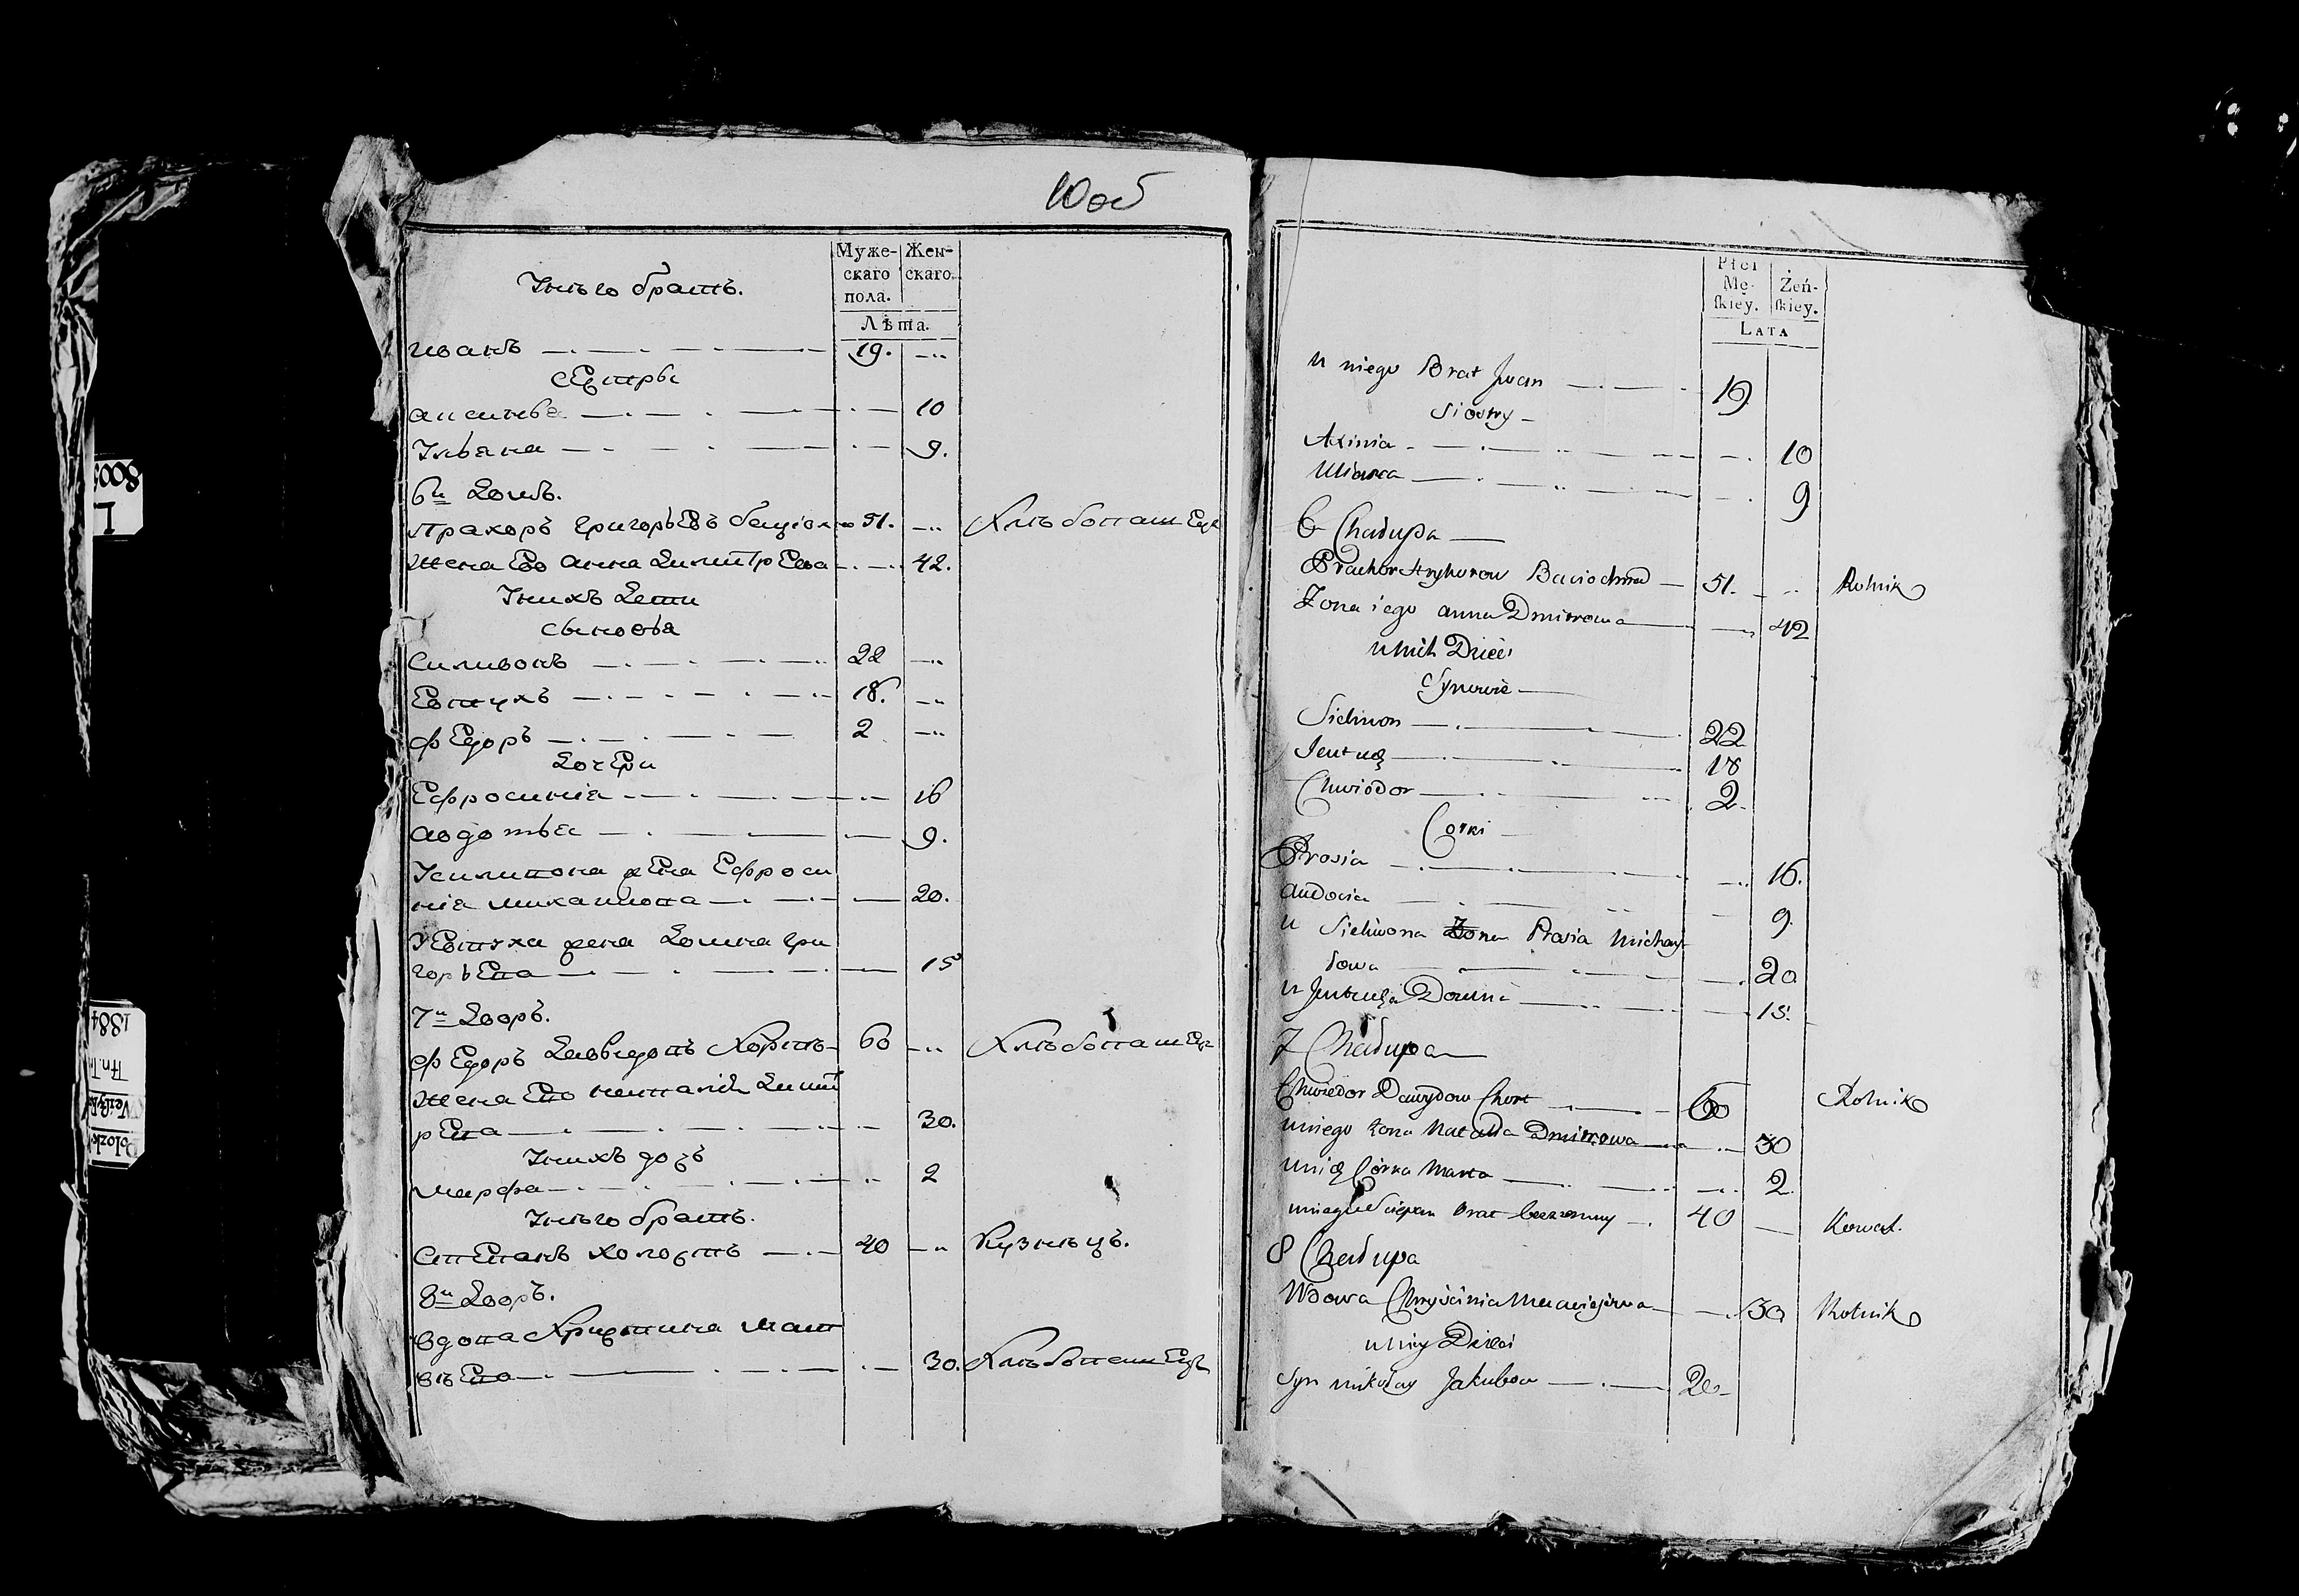 10 об
Муже-
скаго
пола.
Жен-
скаго.
Лѣта.
У него братъ.
иванъ 19.
сестры
аксинья 10
Ульяна 9.
6й Домъ.
Прахоръ григорьевъ 51. Хлѣбопашецъ
жена Его анна димитрЕва 42.
У нихъ дети
сыновья
силивонъ 22
Евтухъ 18.
фЕдоръ 2
дочЕри
Ефросинія 16
авдотья 9.
У силивона жена Ефроси
нія михаилова 20.
У Евтуха жена домна гри
горьЕва 15
7й Дворъ.
фЕдоръ Давыдовъ Хортъ 60 Хлѣбопашецъ
жена Его наталія димит
рЕва 30.
У нихъ дочь
марфа 2
У него братъ.
стЕпанъ холостъ 40 Кузнецъ.
8й Дворъ.
вдова Христина мат
вѣЕва 30. Хлѣбопашецъ
Płci
Mę-
skiey.
Żeń-
skiey.
LATA
u niego Brat Jwan 19
Siostry
Axinia 10
Uliana 9
6 Chałupa
Prachor Hryhorow 51. Rolnik
Zona iego anna Dmitrowa 42
u nich Dzieci
Synowie
Sieliwon 22
Jeutuch 18
Chwiodor 2
Corki
Prosia 16.
audocia 9.
u Sieliwona Zona Prosia Michay-
łowa 20
u Jeutucha Domna 15.
7 Chałupa
Chwiedor Dawydow Chort 60 Rolnik
u niego zona Natalla Dmitrowa 30
u nich Córka Marta 2.
u niego Sciepan brat bezzenny 40 Kowal.
8 Chałupa
Wdowa Chryścinia Maciejowa 30 Rolnik
u niey Dzieci
Syn mikołay Jakubow 20